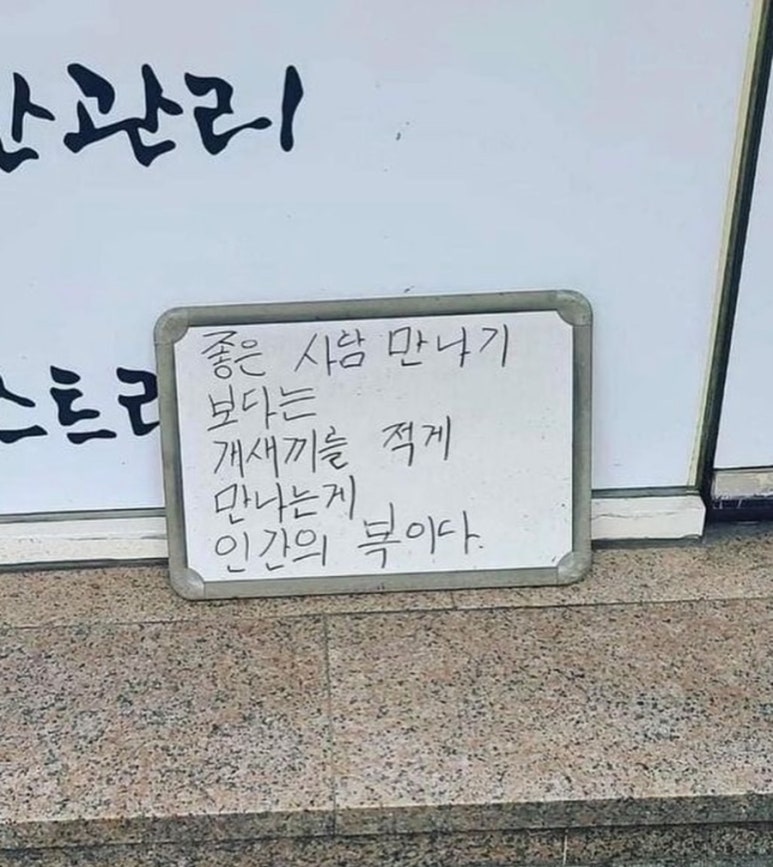 관리
스트
좋은 사람 만나기
보다는
개새끼를 적게
만나는게
인간의 복이다.